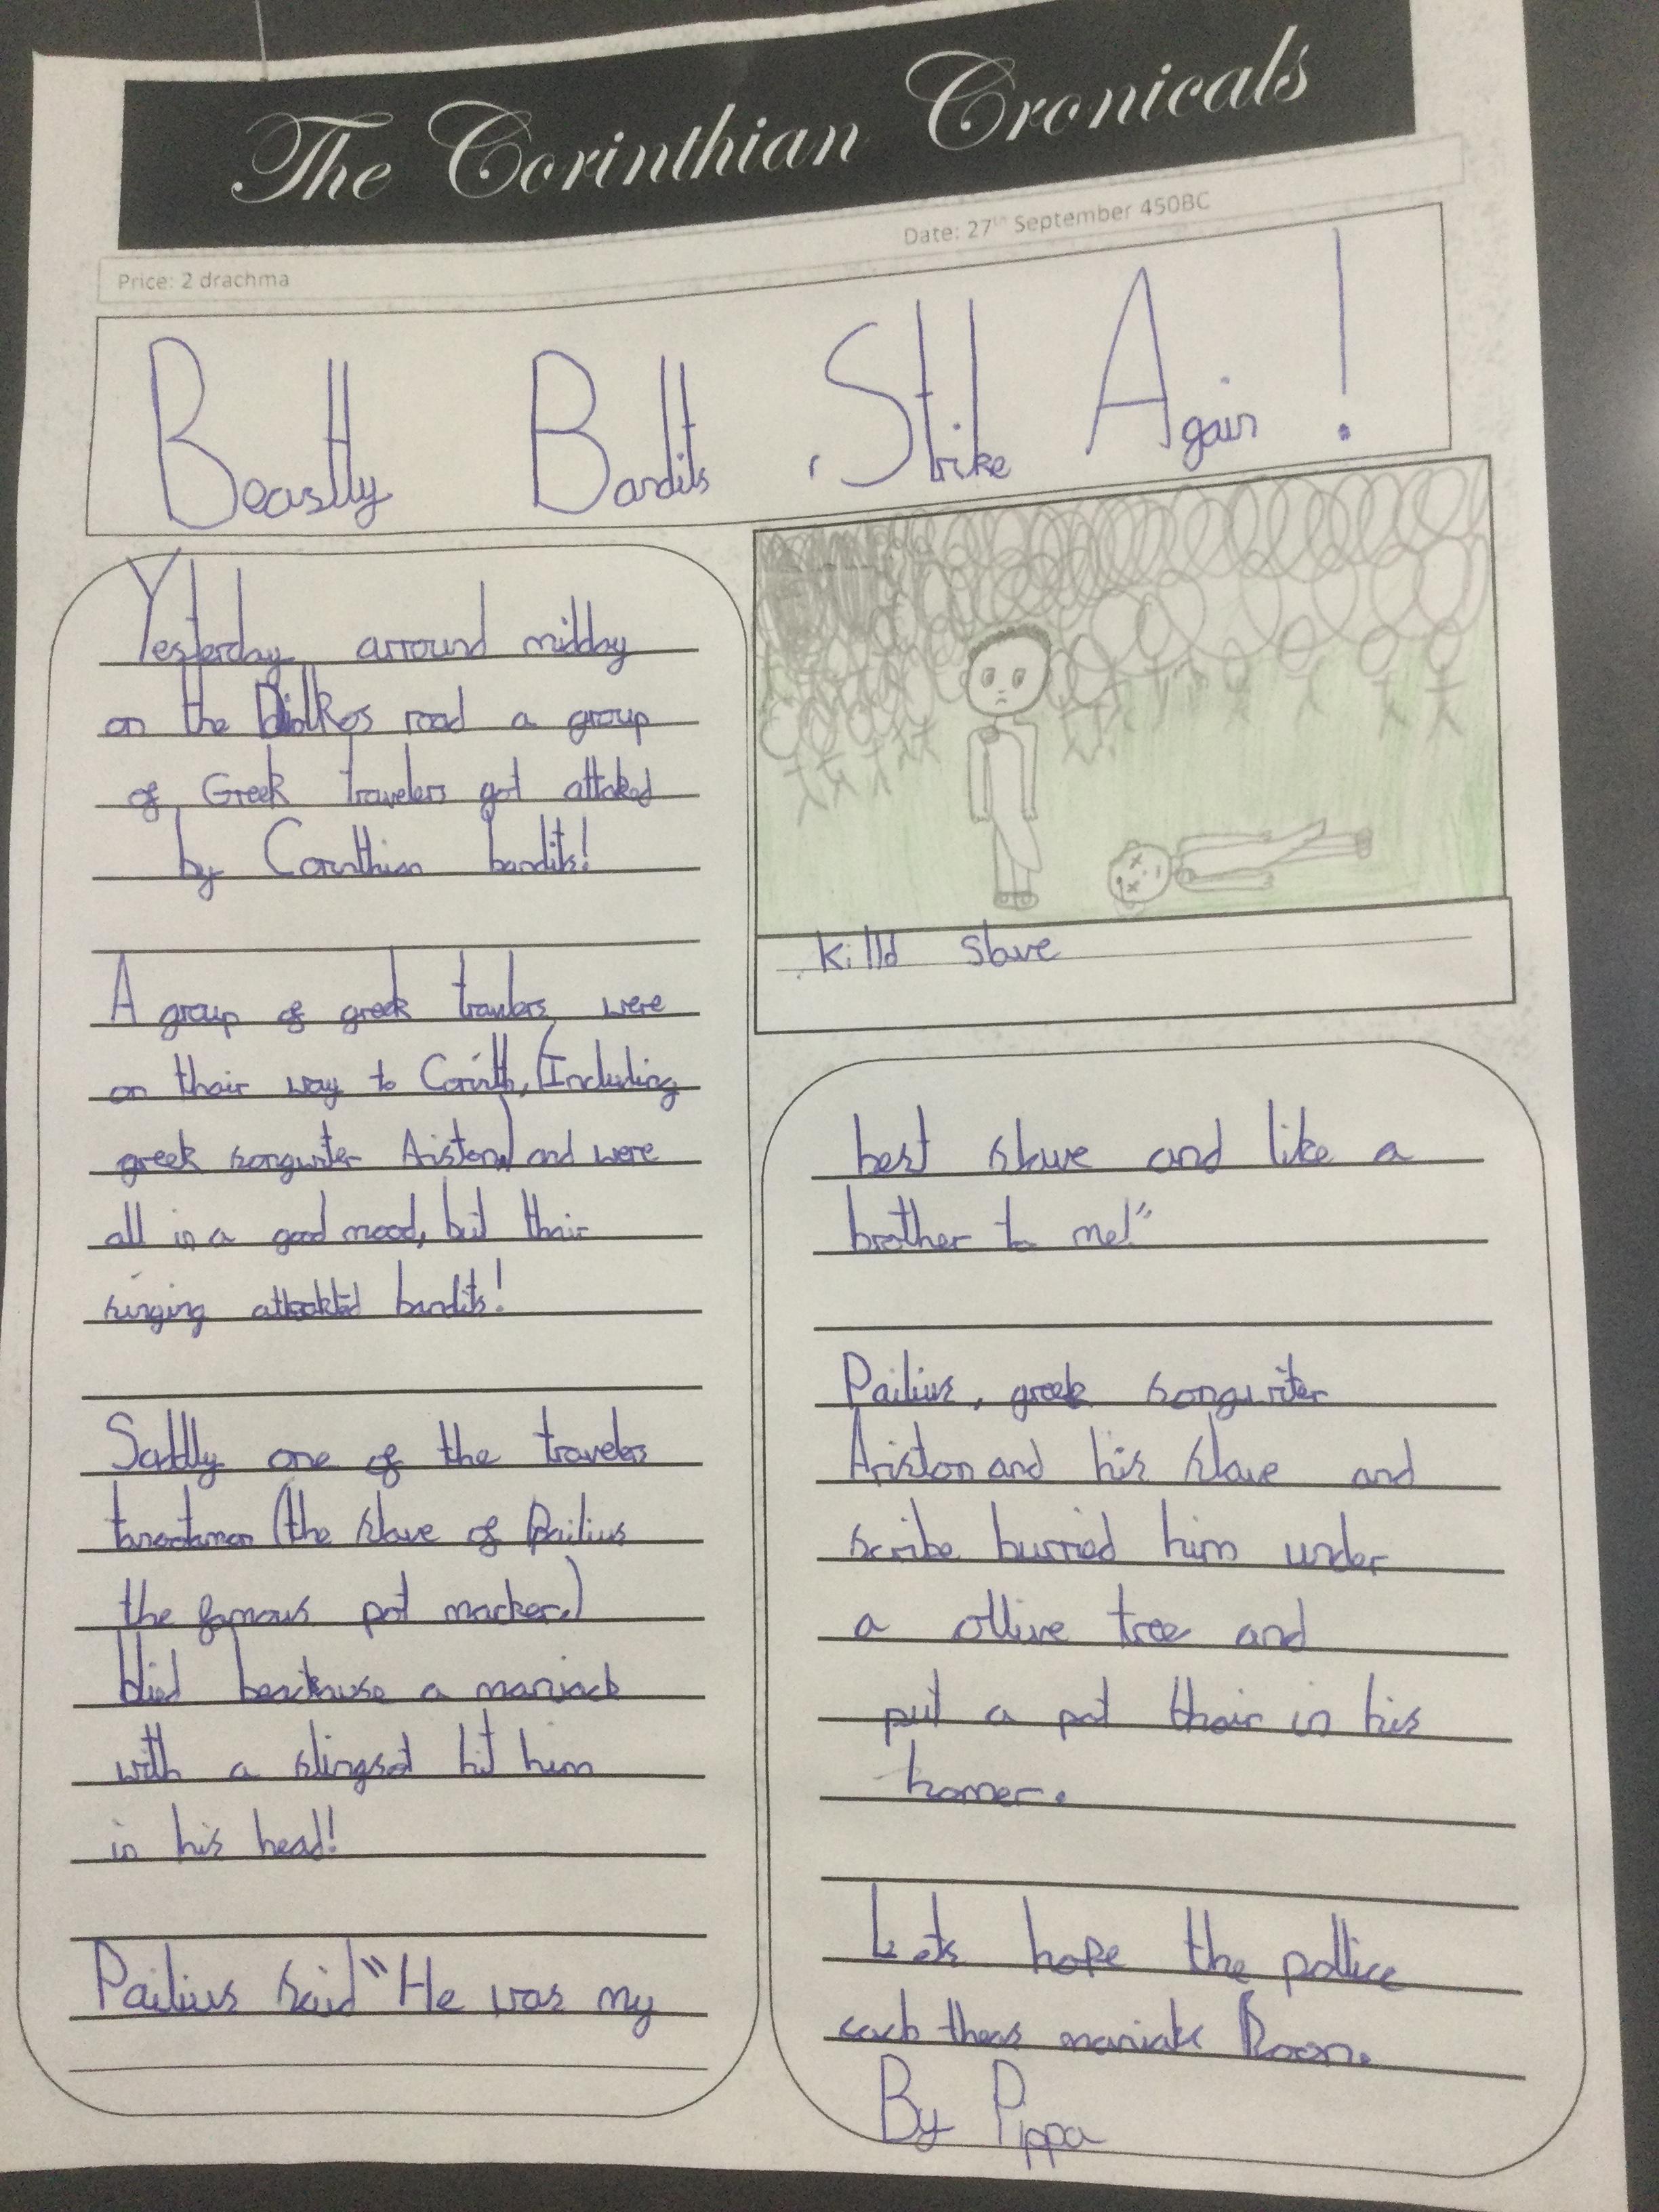 The Corinthian Cronicals
Price: 2 drachma
Date: 27th September 450BC
Beastly Bandits Strike Again!
Yesterday arround midday
on the road a group
of Greek travelers got attaked
by Corinthian bandits!
A group of greek travlers were
on thair way to Corinth, (Including
greek songwriter Ariston) and were
all in a good mood, but thair
singing bandits!
Saddly one of the travelers
(the slave of Pailius
the famous pot marker.)
died a maniack
with a slingsot hit him
in his head!
Pailius said "He was my
killd slave
best slave and like a
brother to me!"
Pailius, greek songwriter
Ariston and his slave and
scribe burried him under
a ollive tree and
put a pot thair in his
homer.
Lets hope the pollice
cach theas maniaks soon.
By Pippa